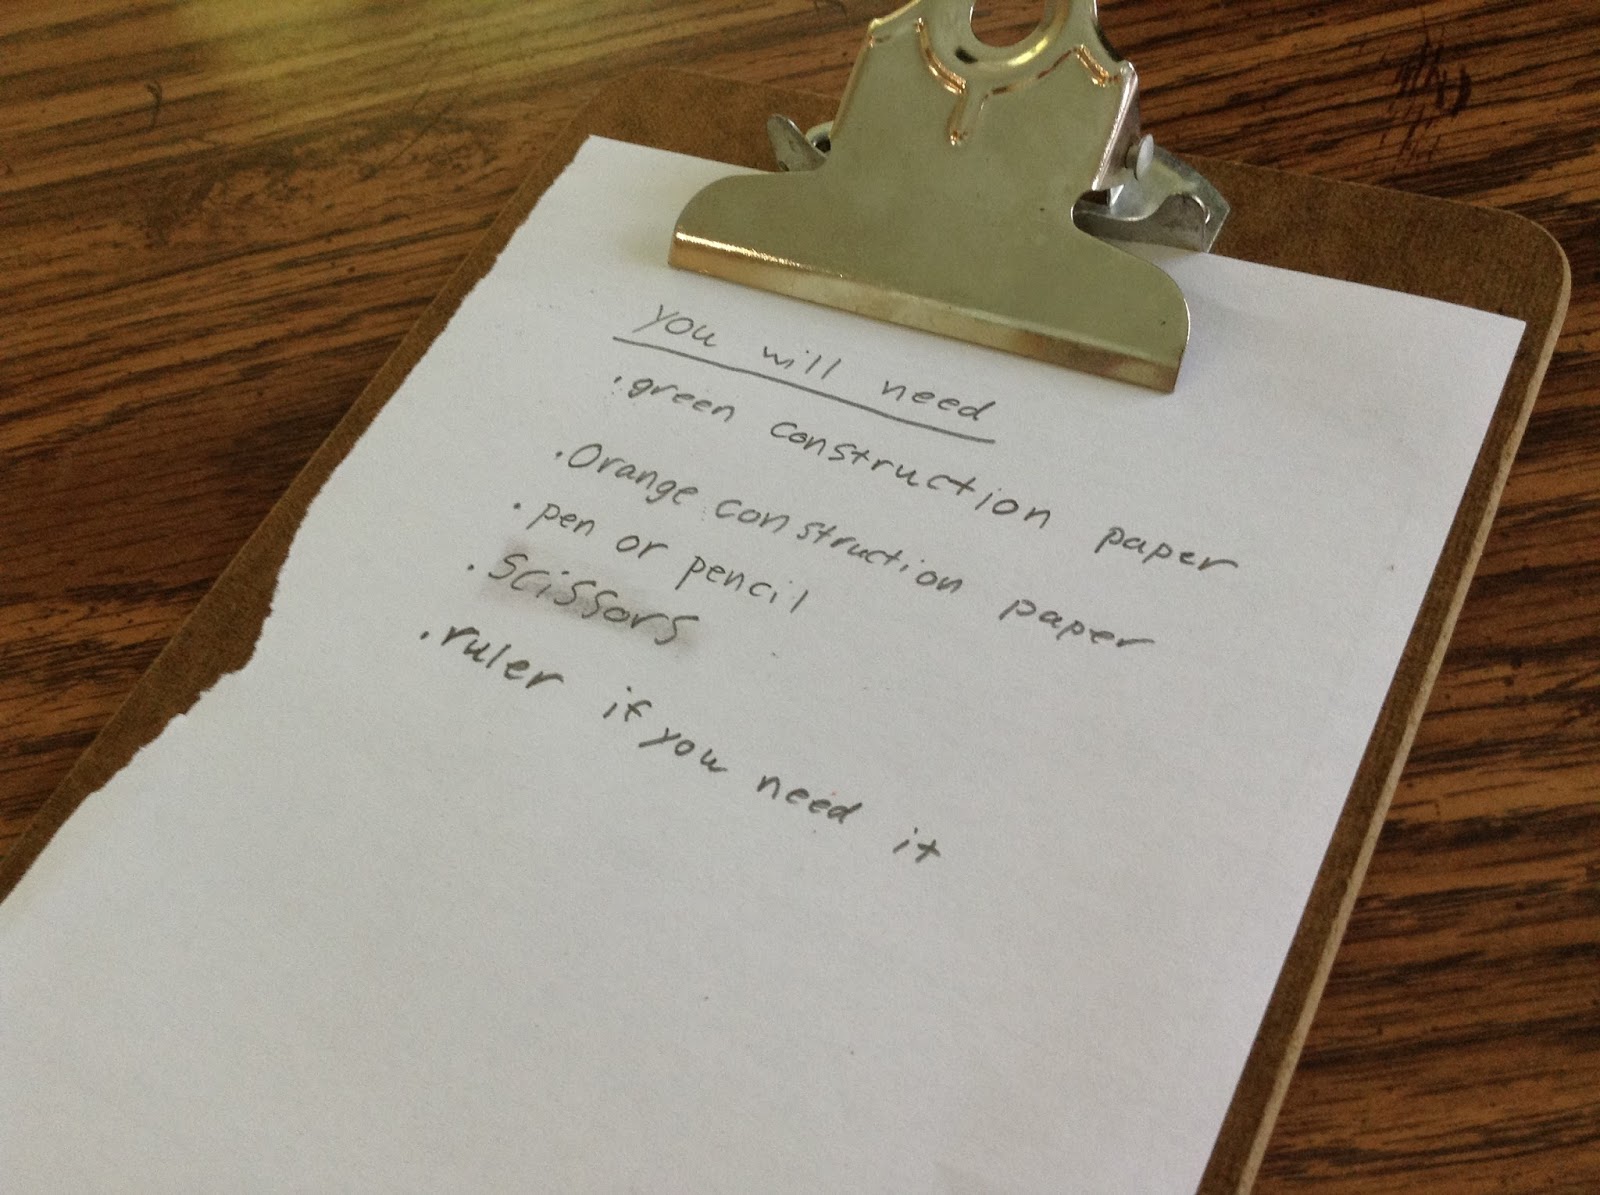 you will need
.green construction paper
.Orange construction paper
.pen or pencil
.scissors
.ruler if you need it